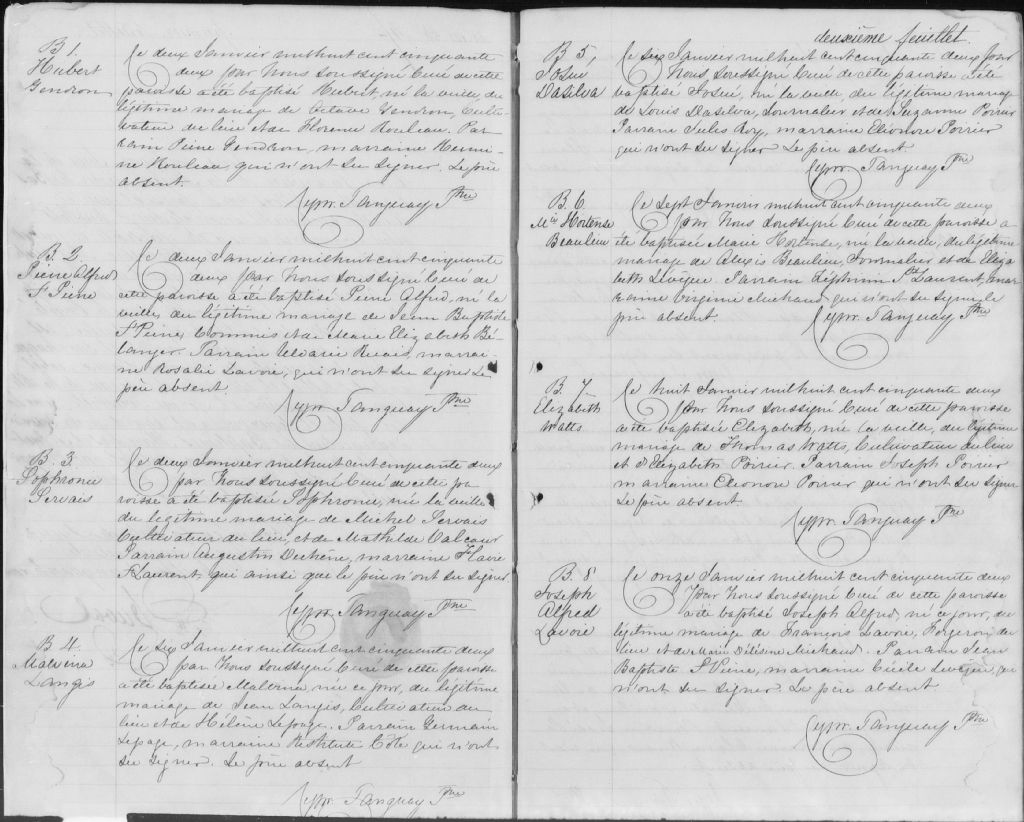 B 1.
Hubert
Gendron
Le deux Janvier mil huit cent cinquante
deux par Nous soussigné Curé de cette
paroisse a été baptisé Hubert, né la veille, du
légitime mariage de Octave Gendron, Culti-
vateur de lieu et de Florence Rouleau. Par
rain Pierre Gendron, marraine Hermi-
ne Rouleau, qui n'ont su signer. Le père
absent.
Cypr. Tanguay Ptre
B. 2
Pierre Alfred
St Pierre
Le deux Janvier mil huit cent cinquante
deux par Nous soussigné Curé de
cette paroisse a été baptisé Pierre Alfred, né la
veille, du légitime mariage de Jean Baptiste
St Pierre, Commis et de Marie Elizabeth Bé-
langer. Parrain marrai-
ne Rosalie Lavoie, qui n'ont su signer Le
père absent
Cypr. Tanguay Ptre
B. 3
Sophronie
Servais
Le deux Janvier mil huit cent cinquante deux
par Nous soussigné Curé de cette pa
roisse a été baptisé Sophronie, né la veille
du légitime mariage de Michel Servais
Cultivateur du lieu, et de Mathilde Valcour
Parrain Augustin Duchène, marraine Flavie
St Laurent qui ainsi que le père n'ont su signer.
Cypr. Tanguay Ptre
B 4.
Malvina
Langis
Le six Janvier mil huit cent cinquante deux
par Nous soussigné Curé de cette paroisse
a été baptisée Malvina, née ce jour, du légitime
mariage de Jean Langis, Cultivateur du
lieu et de Hélène Lepage. Parrain Germain
Lepage, marraine Restitute Côté qui n'ont
su signer. Le père absent
Cypr. Tanguay Ptre
deuxième feuillet.
B 5,
Josué
Dasilva
Le six Janvier mil huit cent cinquante deux par
Nous, soussigné Curé de cette paroisse a été
baptisé Josué, né la veille, du légitime mariage
de Louis Dasilva, Journalier et de Suzanne Poirier
Parrain Jules Roy, marraine Eléonore Poirier
qui n'ont su signer Le père absent.
Cypr. Tanguay Ptre
B. 6
Mie Hortense
Beaulieu
Le sept Janvier mil huit cent cinquante deux
par Nous soussigné Curé de cette paroisse a
été baptisée Marie Hortense, né la veille, du légitime
mariage de Alexis Beaulieu, Journalier et de Eliza
beth Lévêque. Parrain Zéphirin St Laurent, mar
raine Virginie Michaud, qui n'ont su signer, le
père absent.
Cypr. Tanguay Ptre
B. 7
Elizabeth
Watts
Le huit Janvier mil huit cent cinquante deux
par Nous soussigné Curé de cette paroisse
a été baptisée Elizabeth, née la veille, du légitime
mariage de Thomas Watts, Cultivateur du lieu
et d'Elizabeth Poirier. Parrain Joseph Poirier
marraine Eléonore Poirier qui n'ont su signer
Le père absent.
Cypr. Tanguay Ptre
B. 8
Joseph
Alfred
Lavoie
Le onze Janvier mil huit cent cinquante deux
par Nous soussigné Curé de cette paroisse
a été baptisé Joseph Alfred, né ce jour, du
légitime mariage de François Lavoie, Forgeron, du
lieu et de Marie Délésime Michaud. Parrain Jean
Baptiste St Pierre, marraine Cécile Levêque, qui
n'ont su signer. Le père absent.
Cypr. Tanguay Ptre